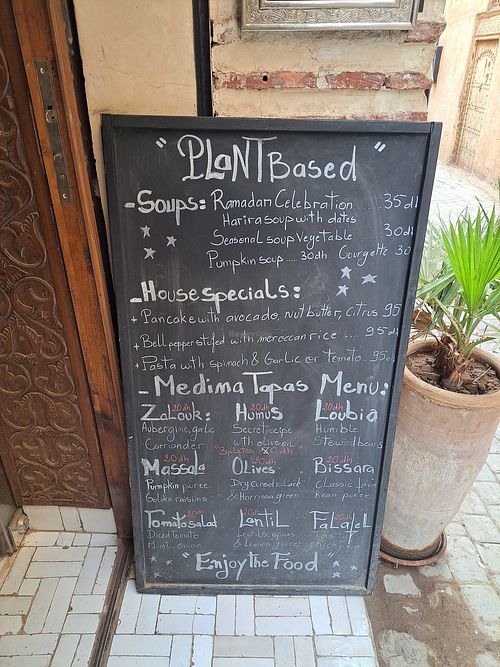 " PLaNT Based "
- Soups: Ramadan Celebration .... 35 dh
Harira soup with dates
Seasonal soup Vegetable 30 dh
Pumpkin soup .... 30 dh Courgette 30
- House specials:
+ Pancake with avocado, nut butter, citrus 95
+ Bell pepper stuffed with moroccan rice .... 95 dh
+ Pasta with spinach & Garlic or Tomato .. 95
- Medina Tapas Menu:
20dh 20dh 20dh
Zalouk: Humus Loubia
Aubergine, garlic Secret recipe Humble
Corriander with olive oil Stewed beans
"3 plates 50 dh"
20dh 20dh 20dh
Massala Olives Bissara
Pumpkin puree Dry Cured black Classic fava
Golden raisins & Harrissa green Bean puree
20dh 20dh
Tomato salad Lentil Falafel
Diced tomato Lentils, spices
Mint, onion & Lemon
" Enjoy the Food "